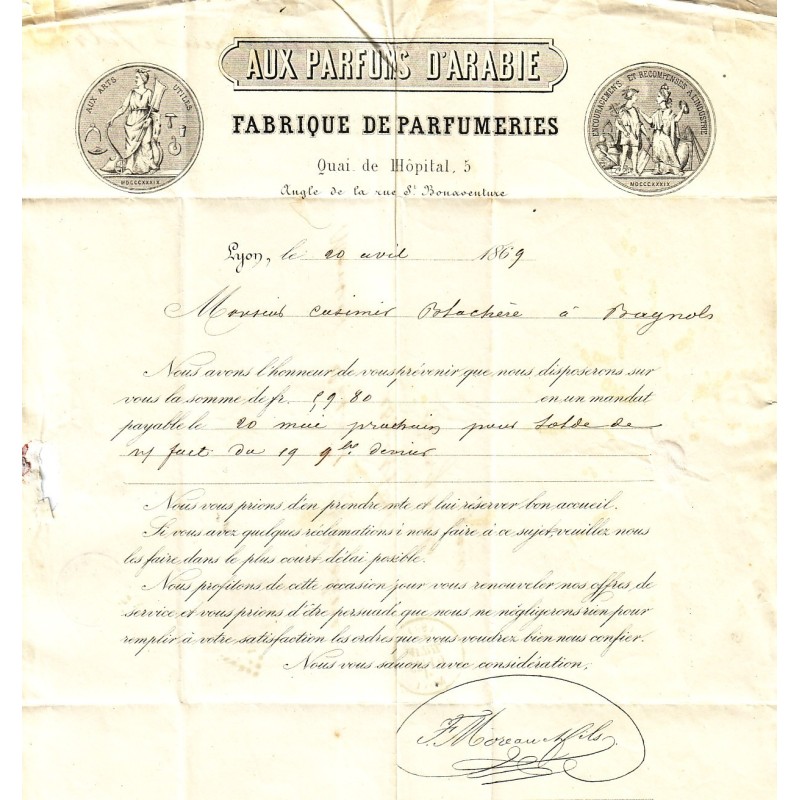 AUX PARFUMS D'ARABIE
AUX ARTS UTILES
MDCCCXXXIX
ENCOURAGEMENTS ET RECOMPENSES A L'INDUSTRIE
MDCCCXXXIX
FABRIQUE DE PARFUMERIES
Quai de l'Hôpital, 5
Angle de la rue St. Bonaventure
Lyon, le 20 avril 1869
Monsieur Casimir Blachère à Bagnols
Nous avons l'honneur de vous prévenir que nous disposerons sur
vous la somme de fr. 59.80 en un mandat
payable le 20 mai prochain pour solde de
n/ fact du 19 9bre dernier
Nous vous prions d'en prendre note et lui réserver bon accueil.
Si vous avez quelques réclamations i nous faire à ce sujet, veuillez nous
les faire dans le plus court délai posible.
Nous profitons de cette occasion jour vous renouveler nos offres de
service et vous prions d'être persuadé que nous ne négligerons rien pour
remplir à votre satisfaction les ordres que vous voudrez bien nous confier.
Nous vous saluons avec considération,
F. Moreau & fils